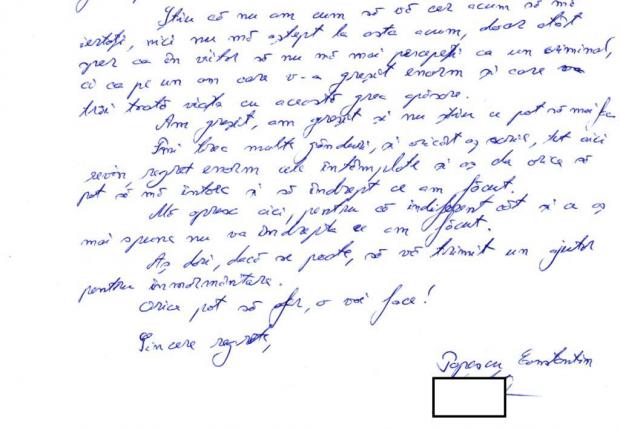 Știu că nu am cum să vă cer acum să mă
iertați, nici nu mă aștept la asta acum, doar atât
sper ca în viitor să nu mă mai percepeți ca un criminal,
ci ca pe un om care v-a greșit enorm și care va
trăi toată viața cu această grea apăsare.
Am greșit, am greșit și nu știu ce pot să mai fac
Îmi trec multe gânduri, și oricât aș scrie, tot aici
revin regret enorm cele întâmplate și aș da orice să
pot să mă întorc și să îndrept ce am făcut.
Mă opresc aici, pentru că indiferent cât și ce aș
mai spune nu va îndrepta ce am făcut.
Aș dori, dacă se poate, să vă trimit un ajutor
pentru înmormântare.
Orice pot să fac, o voi face!
Sincere regrete,
Popescu Constantin